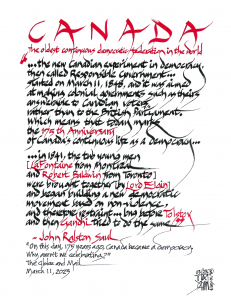 CANADA
The oldest continuous democratic federation in the world
...the new Canadian experiment in democracy,
then called Responsible Government...
started on March 11, 1848, and it was aimed
at making colonial governments such as theirs
answerable to Canadian voters,
rather than to the British Parliament,
which means that today marks
the 175th Anniversary
of Canada's continuous life as a democracy...
...in 1841, the two young men
[LaFontaine from Montreal
and Robert Baldwin from Toronto]
were brought together [by Lord Elgin]
and began building a new democratic
movement based on non-violence,
and therefore restraint... long before Tolstoy
and then Gandhi tried to do the same.
- John Ralston Saul
"On this day, 175 years ago, Canada became a democracy.
Why aren't we celebrating?"
The Globe and Mail
March 11, 2023